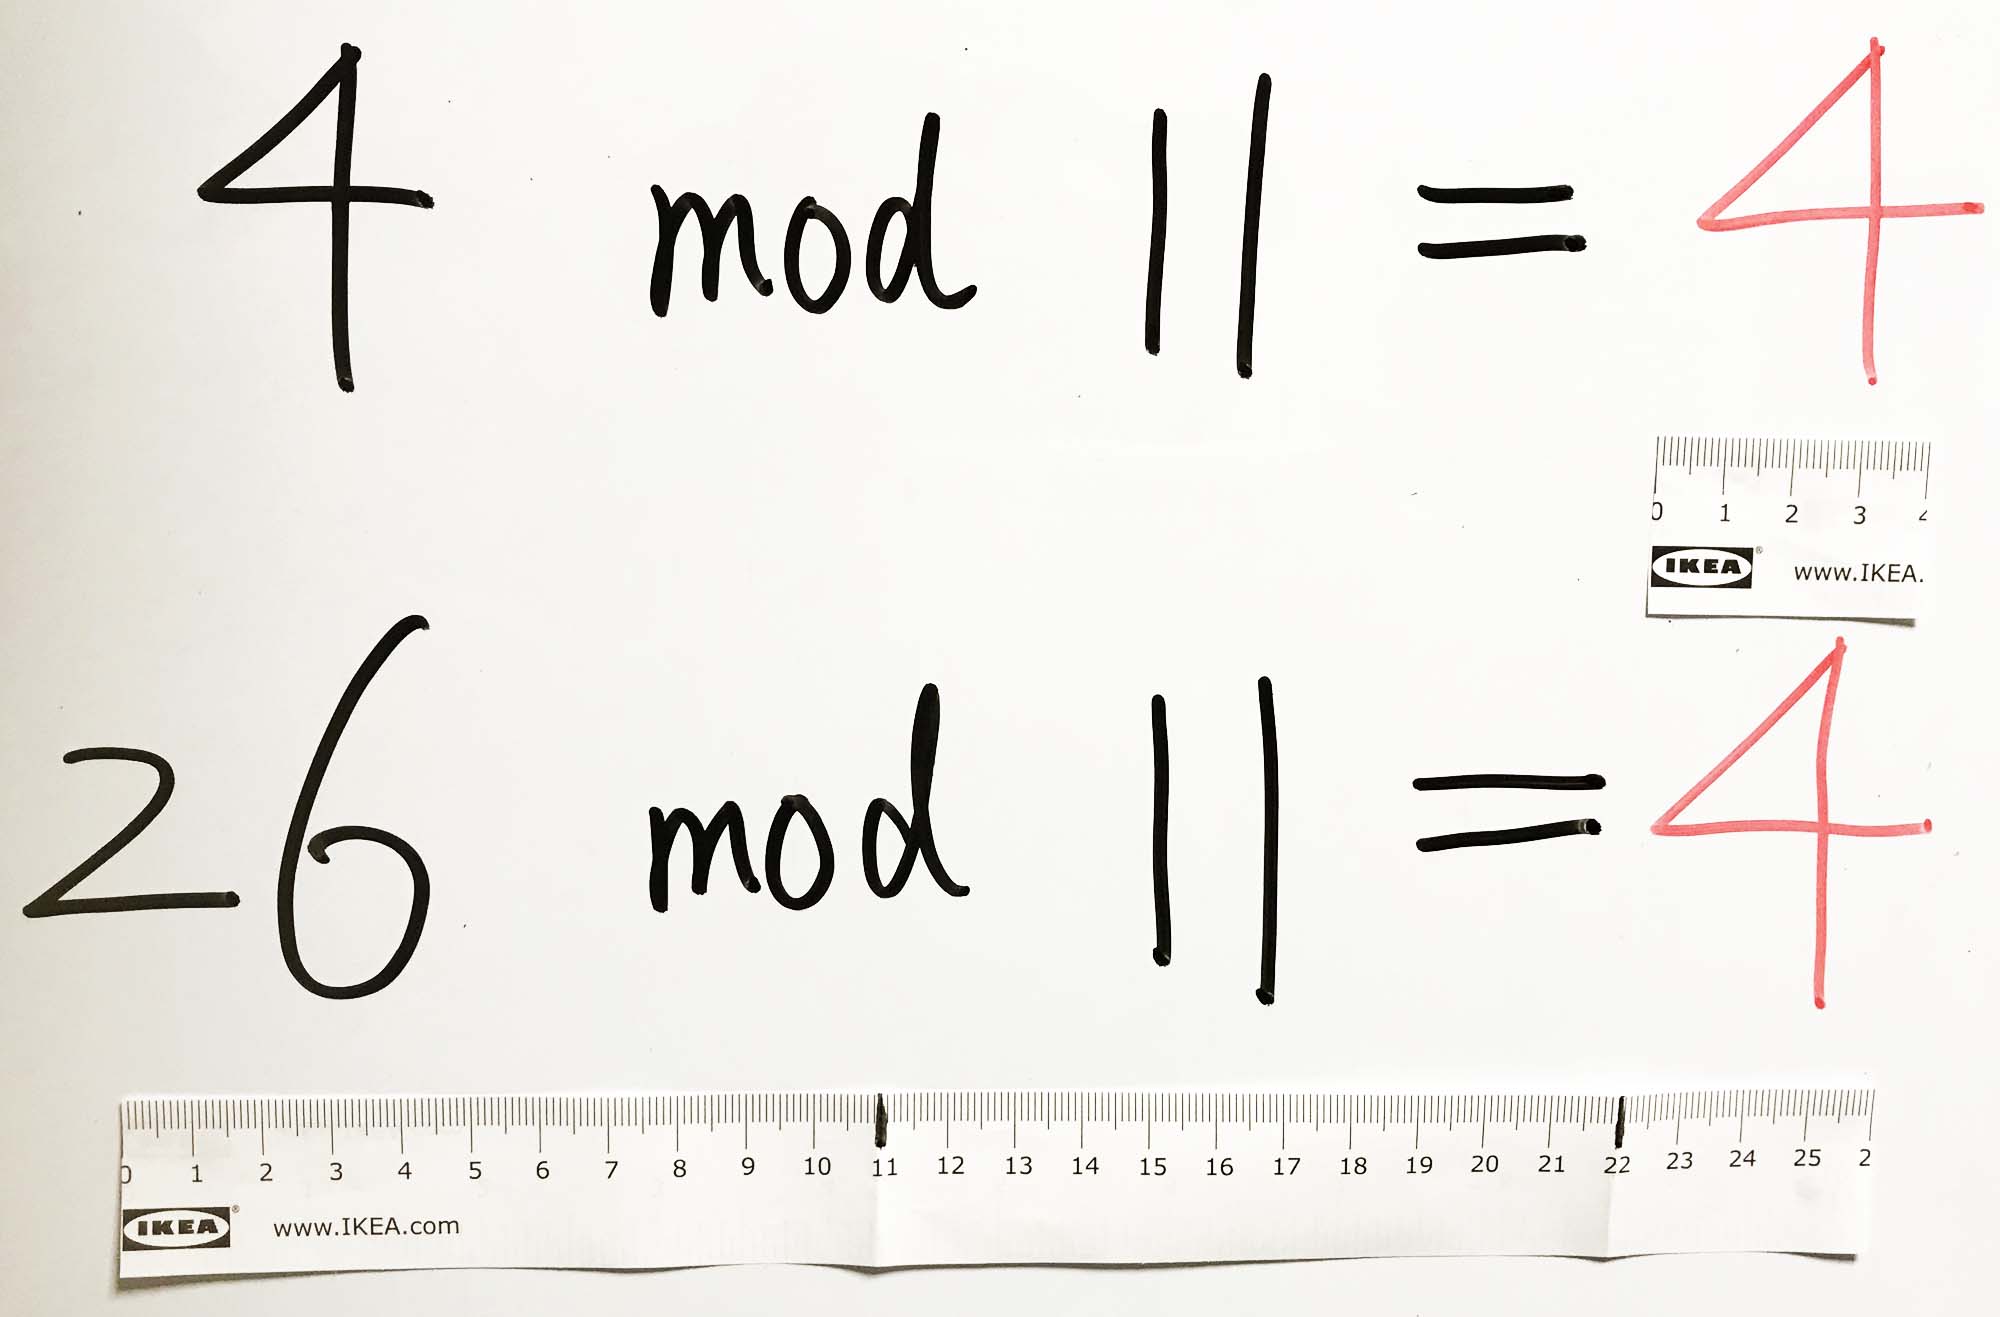 4 mod 11 = 4
0 1 2 3 4
IKEA® www.IKEA.
26 mod 11 = 4
0 1 2 3 4 5 6 7 8 9 10 11 12 13 14 15 16 17 18 19 20 21 22 23 24 25 2
IKEA® www.IKEA.com